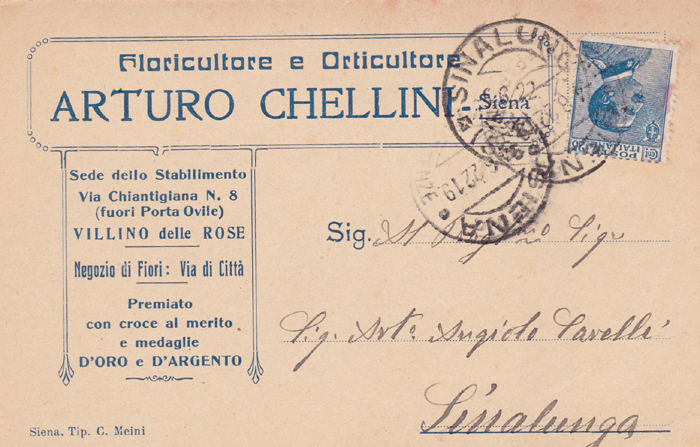 Floricultore e Orticultore
ARTURO CHELLINI - Siena
Sede dello Stabilimento
Via Chiantigiana N. 8
(fuori Porta Ovile)
VILLINO delle ROSE
Negozio di Fiori: Via di Città
Premiato
con croce al merito
e medaglie
D'ORO e D'ARGENTO
Siena, Tip. C. Meini
SINALUNGA
SIENA
POSTE ITALIANE
Sig.
Sig. Arto Angiolo Cavelli
Sinalunga